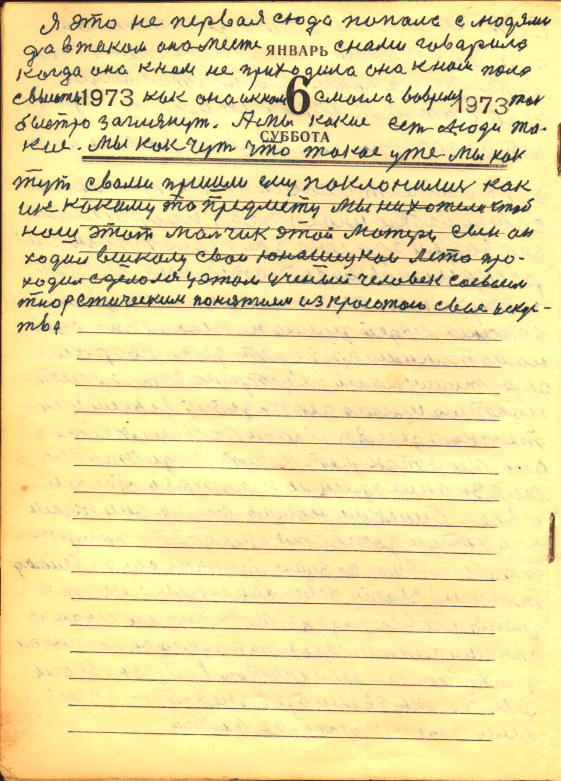 Я это не первая сюда попала с людями
да в таком она месте ЯНВАРЬ снами говарила
когда она кнам не приходила она кнам пола
1973 как она 6 смогла воврем 1973 так
быстро заглянут. А мы какие ест люди та-
СУББОТА
кие. Мы как чут что такое уже мы как
тут свами пришли ему поклонилис как
ик какому то предмету мы ни хотели чтоб
наш этот малчик этой матери сын он
ходил вшколу свои юнашиские лето про-
ходил сделолся этом учений человек совсем
тиористическим понятием из простою своя искус-
тва